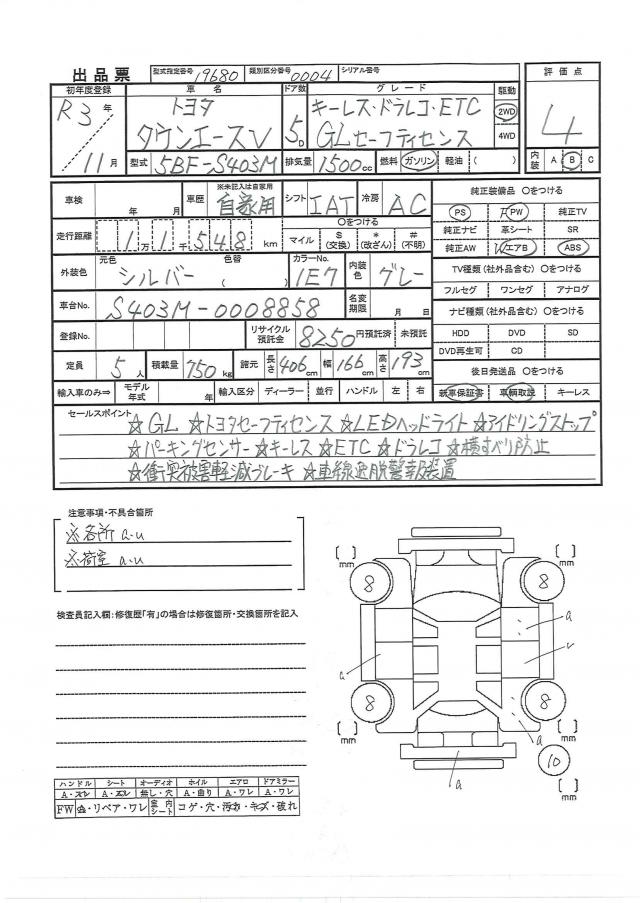 出品票 型式指定番号 19680 類別区分番号 0004 シリアル番号
初年度登録 車名 ドア数 グレード 駆動 評価点
R3年 トヨタ キーレス・ドラレコ・ETC 2WD 4
11月 タウンエースV 5D GLセーフティセンス 4WD
型式 5BF-S403M 排気量 1500cc 燃料 ガソリン 軽油 ( ) 内装 A B C
車検 年 月 車歴 ※未記入は自家用 自家用 シフト IAT 冷房 AC 純正装備品 〇をつける
走行距離 1万1千548km 〇をつける マイル $(交換) *(改ざん) #(不明) PS PW 純正TV
純正ナビ 革シート SR
外装色 元色 シルバー 色替 ( ) カラーNo. 1E7 内装色 グレー 純正AW エアB ABS
TV種類(社外品含む) 〇をつける
車台No. S403M-0008858 名変期限 月 日 フルセグ ワンセグ アナログ
ナビ種類(社外品含む) 〇をつける
登録No. リサイクル預託金 8250円預託済 未預託 HDD DVD SD
DVD再生可 CD
定員 5人 積載量 750kg 諸元 長さ 406cm 幅 166cm 高さ 193cm 後日発送品 〇をつける
輸入車のみ⇒ モデル年式 年 輸入区分 ディーラー 並行 ハンドル 左 右 新車保証書 車輌取説 キーレス
セールスポイント
☆GL ☆トヨタセーフティセンス ☆LEDヘッドライト ☆アイドリングストップ
☆パーキングセンサー ☆キーレス ☆ETC ☆ドラレコ ☆横すべり防止
☆衝突被害軽減ブレーキ ☆車線逸脱警報装置
注意事項・不具合箇所
※各所 a.u
※荷室 a.u
検査員記入欄:修復歴「有」の場合は修復箇所・交換箇所を記入
[ ] mm [ ] mm
8 8
a
a
8 8
[ ] mm [ ] mm
a
a
10
[ ] mm
ハンドル シート オーディオ ホイル エアロ ドアミラー
A・スレ A・スレ 無し・穴 A・曲り A・ワレ A・ワレ
FW 色・リペア・ワレ 室内シート コゲ・穴・汚れ・キズ・破れ